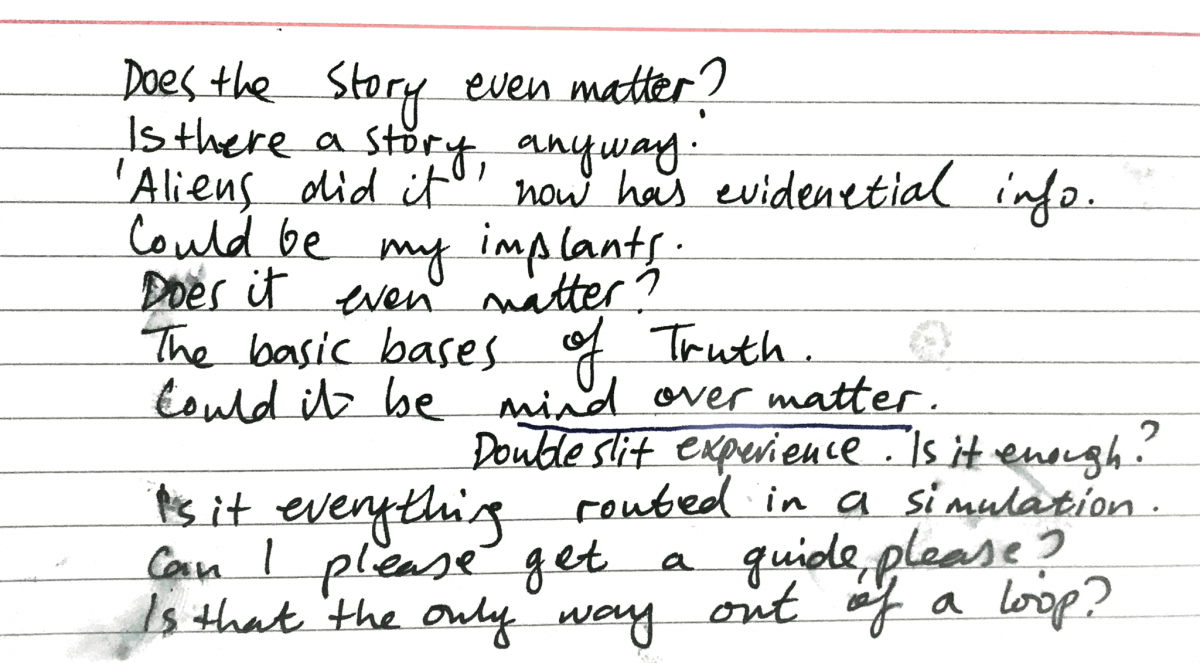 Does the story even matter?
Is there a story, anyway.
'Aliens did it' now has evidenetial info.
Could be my implants.
Does it even matter?
The basic bases of Truth.
Could it be mind over matter.
Double slit experience. Is it enough?
Is it everything routed in a simulation.
Can I please get a guide, please?
Is that the only way out of a loop?